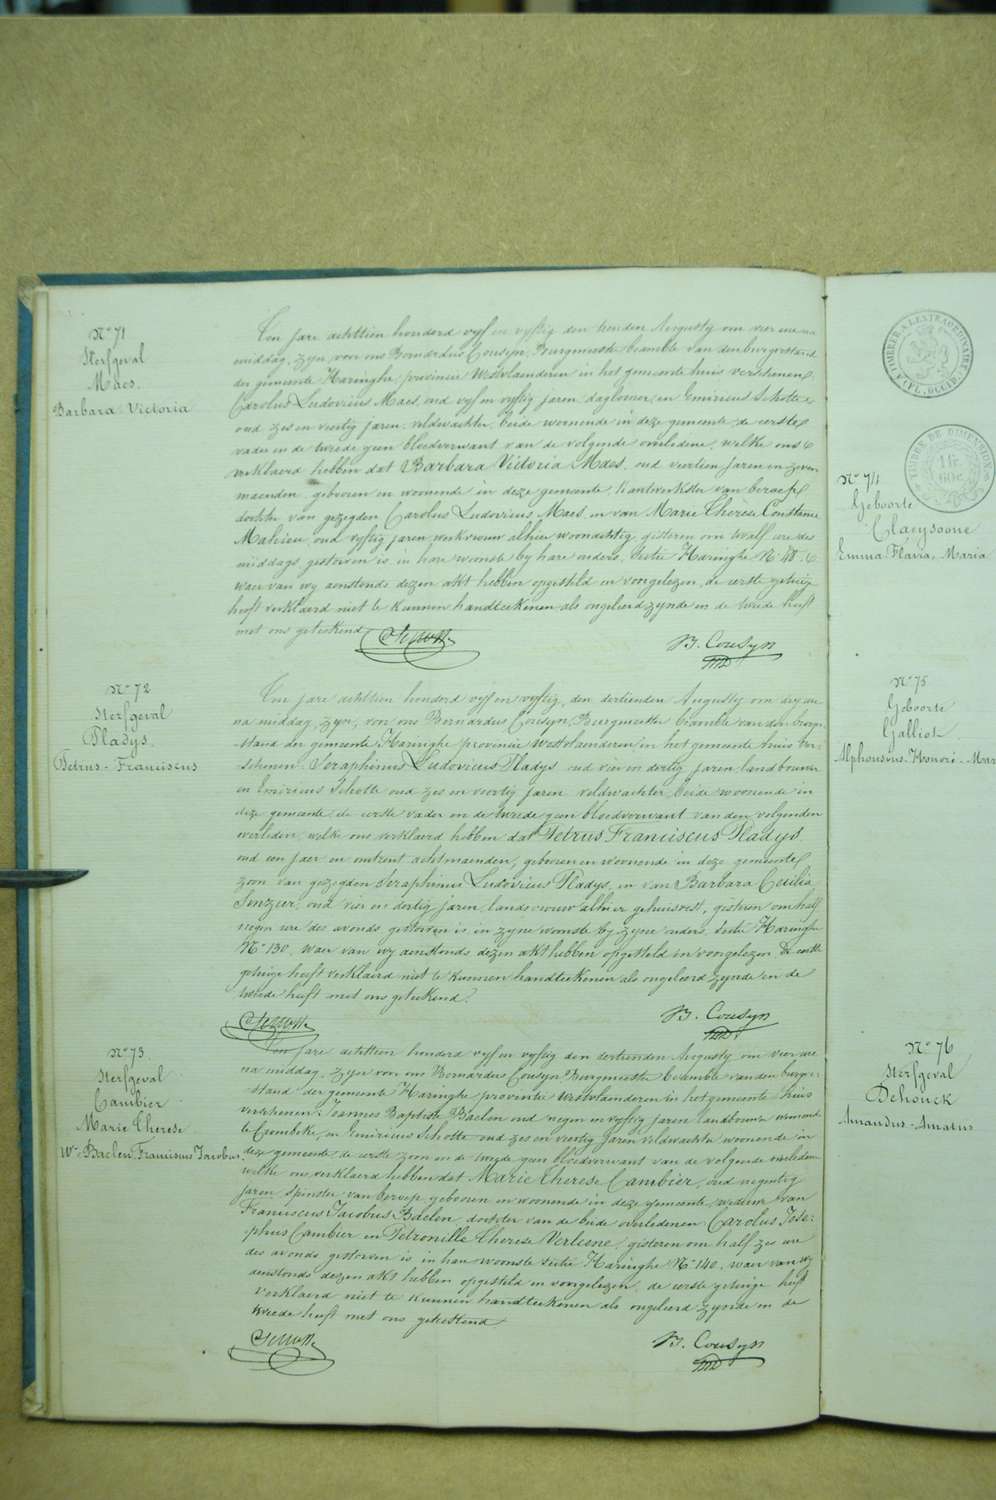 N° 71
Sterfgeval
Maes.
Barbara Victoria
Ten jare achttien honderd vyf en vyftig den tienden Augusty om vier ure na
middag, zyn voor ons Bernardus Cousyn, Burgmeester beambte van den burgerstand
der gemeente Haringhe provincie Westvlaenderen in het gemeente huis verschenen
Carolus Ludovicus Maes, oud vyf en vyftig jaren, daglooner, en Emiricus Schotte
oud zes en veertig jaren, veldwachter, beide wonende in deze gemeente, de eerste
vader en de tweede geen bloedverwant van de volgende overledene, welke ons
verklaerd hebben dat Barbara Victoria Maes, oud veertien jaren en zeven
maenden, geboren en wonende in deze gemeente, kantwerkster van beroep
dochter van gezegden Carolus Ludovicus Maes, en van Marie Therèse Constance
Mahieu, oud vyftig jaren, werkvrouw alhier woonachtig, gisteren om twalf ure des
middags gestorven is in hare woonste by hare ouders, sectie Haringhe N° 48
waer van wy aenstonds dezen akt hebben opgesteld en voorgelezen, de eerste getuige
heeft verklaerd niet te kunnen handteekenen als ongeleerd zynde en de tweede heeft
met ons geteekend
Schotte
B. Cousyn
N° 72
Sterfgeval
Pladys.
Petrus-Franciscus
Ten jare achttien honderd vyf en vyftig, den dertienden Augusty om dry ure
na middag, zyn, voor ons Bernardus Cousyn, Burgmeester beambte van den burger-
stand der gemeente Haringhe provincie Westvlaenderen, in het gemeente huis ver-
schenen Seraphinus Ludovicus Pladys oud vier en dertig jaren landbouwer
en Emiricus Schotte oud zes en veertig jaren veldwachter, beide wonende in
deze gemeente de eerste vader en de tweede geen bloedverwant van den volgenden
overleden, welke ons verklaerd hebben dat Petrus Franciscus Pladys
oud een jaer en omtrent acht maenden, geboren en wonende in deze gemeente
zoon van gezegden Seraphinus Ludovicus Pladys, en van Barbara Cecilia
oud vier en dertig jaren, landsvrouw alhier gehuisvest, gisteren om half
negen ure des avonds gestorven is in zyne woonste by zyne ouders, sectie Haringhe
N° 130, waer van wy aenstonds dezen akt hebben opgesteld en voorgelezen de eerste
getuige heeft verklaerd niet te kunnen handteekenen als ongeleerd zynde en de
tweede heeft met ons geteekend.
Schotte
B. Cousyn
N° 73
Sterfgeval
Cambier
Marie Therese
We Baelen Franciscus Jacobus.
Ten jare achttien honderd vyf en vyftig den dertienden Augusty om vier ure
na middag, zyn voor ons Bernardus Cousyn Burgmeester beambte van den burger-
stand der gemeente Haringhe provintie Westvlaenderen in het gemeente huis
verschenen Joannes Baptiste Baelen oud negen en vyftig jaren landbouwer wonende
te Crombeke, en Emiricus Schotte oud zes en veertig jaren veldwachter wonende in
deze gemeente de eerste zoon en de tweede geen bloedverwant van de volgende overledene
welke ons verklaerd hebben dat Marie Therese Cambier, oud negentig
jaren spinster van beroep geboren en wonende in deze gemeente, weduwe van
Franciscus Jacobus Baelen dochter van de beide overledenen Carolus Jose-
phus Cambier en Petronille Therese Verlesne, gisteren om half zes ure
des avonds gestorven is in hare woonste sectie Haringhe N° 140, waer van wy
aenstonds dezen akt hebben opgesteld en voorgelezen, de eerste getuige heeft
verklaerd niet te kunnen handteekenen als ongeleerd zynde en de
tweede heeft met ons geteekend
Schotte
B. Cousyn
N° 74
Geboorte
Claeysoone
Emma Flavia Maria
N° 75
Geboorte
Galliot
Alphonsus-Honoré-Mar
N° 76
Sterfgeval
Dehouck
Amandus-Amatus